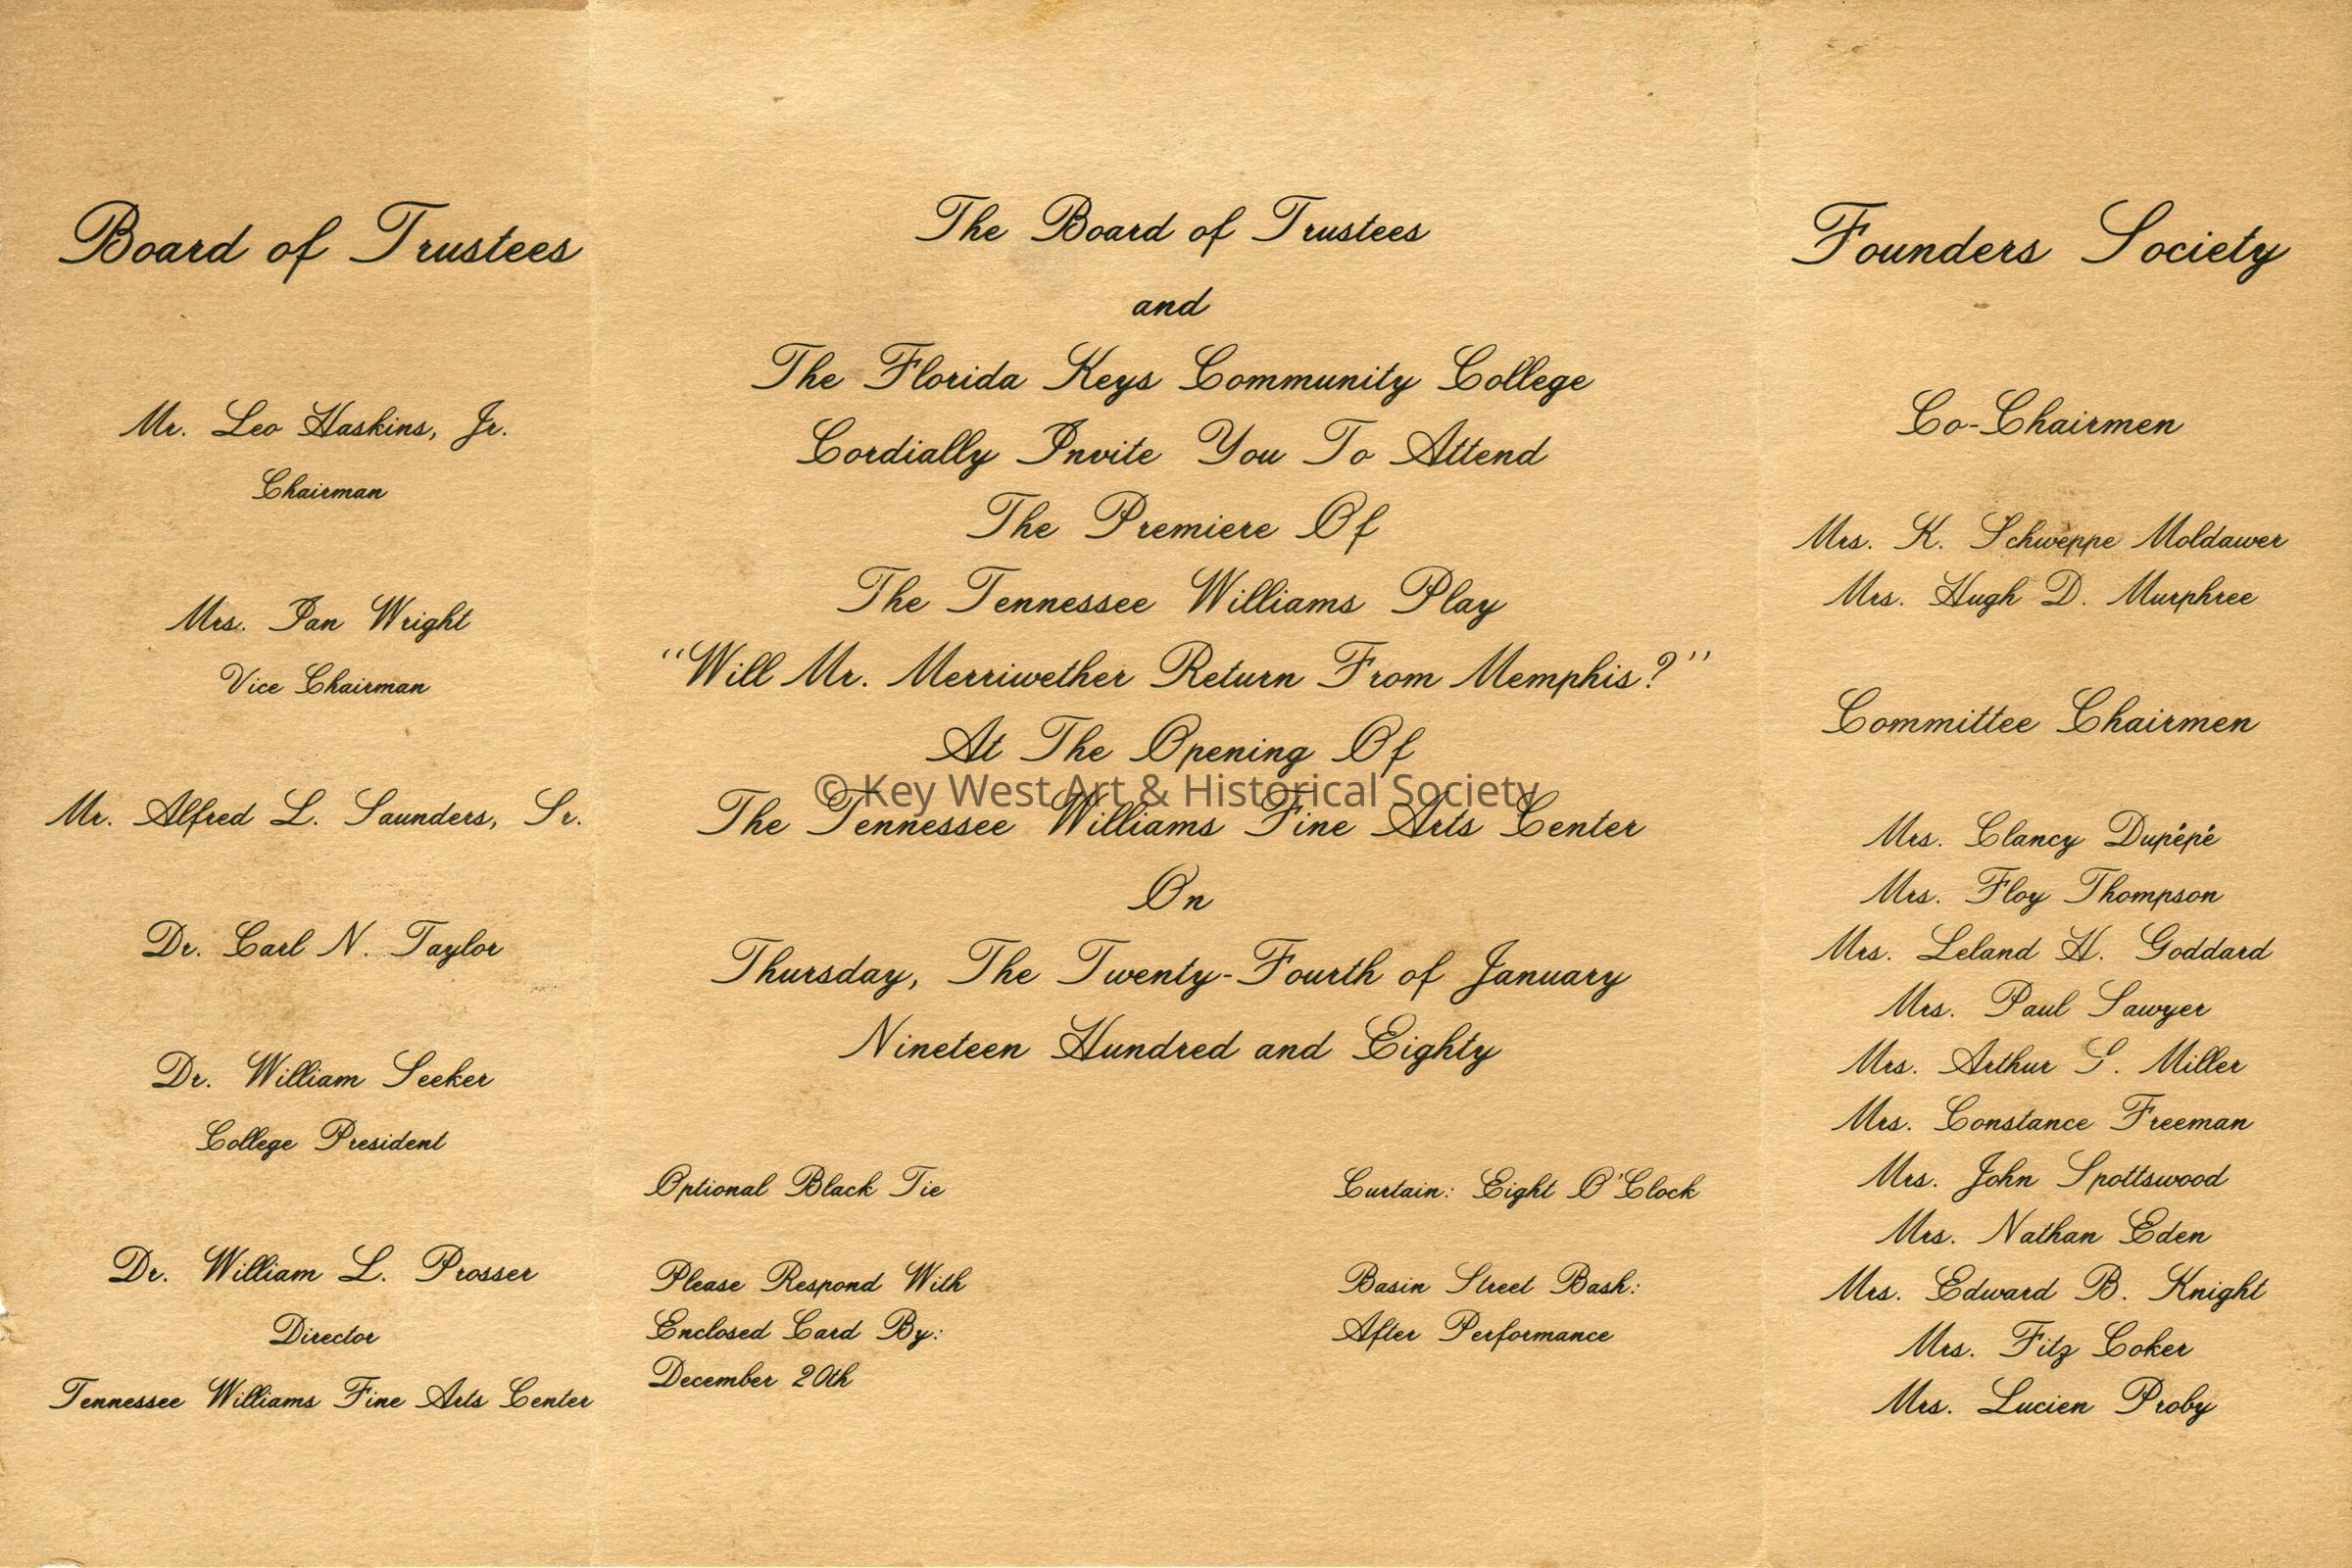 Board of Trustees
Mr. Leo Haskins, Jr.
Chairman
Mrs. Ian Wright
Vice Chairman
Mr. Alfred L. Saunders, Sr.
Dr. Carl N. Taylor
Dr. William Seeker
College President
Dr. William L. Prosser
Director
Tennessee Williams Fine Arts Center
The Board of Trustees
and
The Florida Keys Community College
Cordially Invite You To Attend
The Premiere Of
The Tennessee Williams Play
“Will Mr. Merriwether Return From Memphis?”
At The Opening Of
© Key West Art & Historical Society
The Tennessee Williams Fine Arts Center
On
Thursday, The Twenty-Fourth of January
Nineteen Hundred and Eighty
Optional Black Tie
Please Respond With
Enclosed Card By:
December 20th
Curtain: Eight O'Clock
Basin Street Bash:
After Performance
Founders Society
Co-Chairmen
Mrs. K. Schweppe Moldawer
Mrs. Hugh D. Murphree
Committee Chairmen
Mrs. Clancy Dupépé
Mrs. Floy Thompson
Mrs. Leland H. Goddard
Mrs. Paul Sawyer
Mrs. Arthur G. Miller
Mrs. Constance Freeman
Mrs. John Spottswood
Mrs. Nathan Eden
Mrs. Edward B. Knight
Mrs. Fitz Coker
Mrs. Lucien Proby